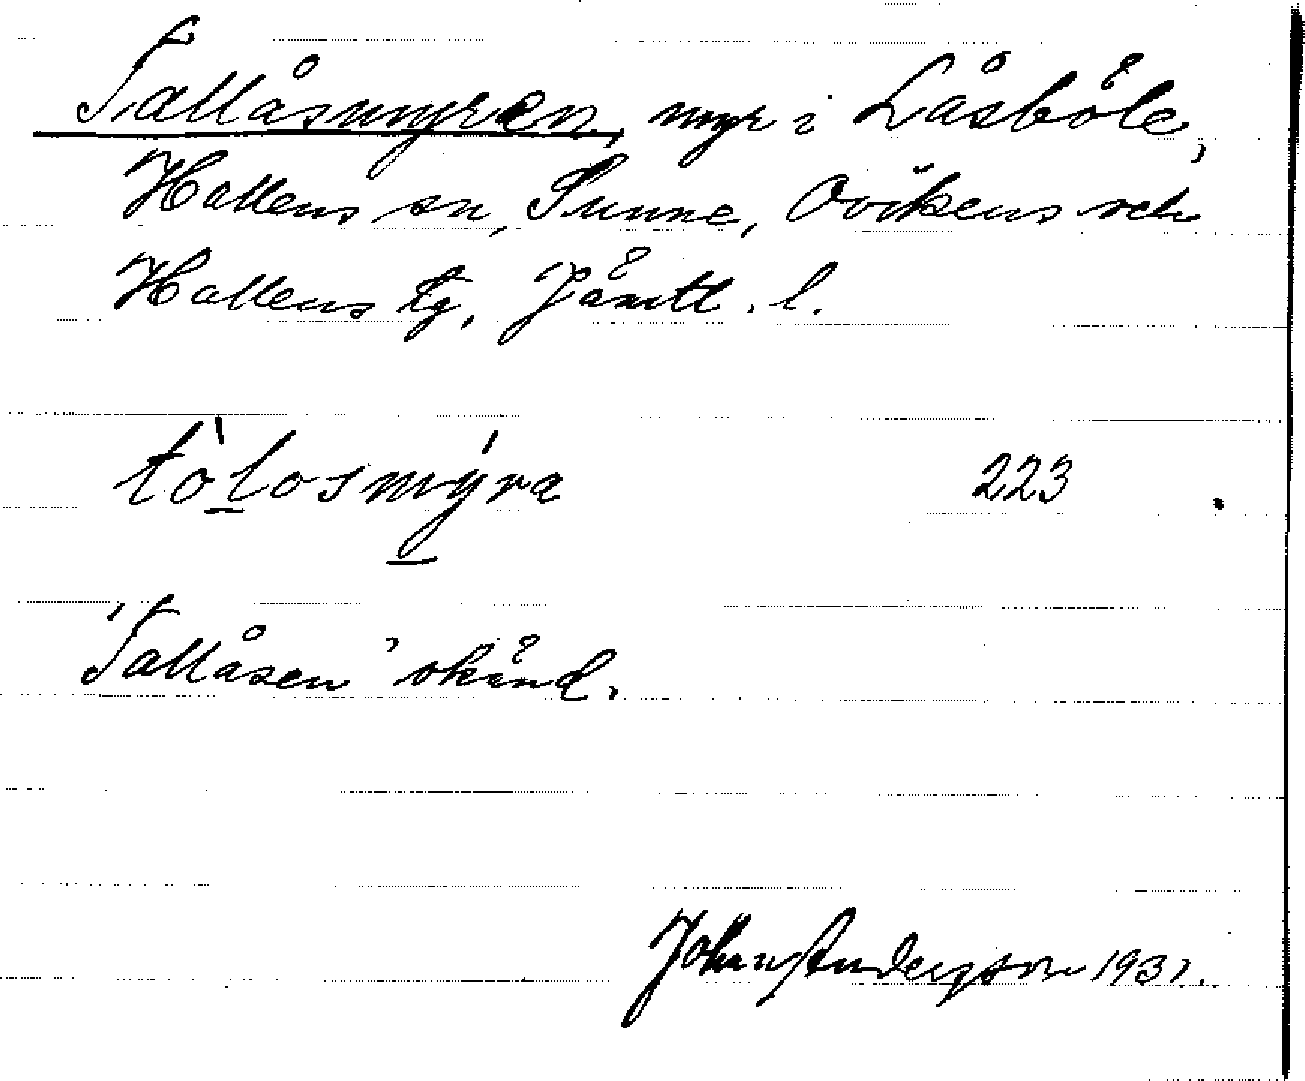 Tallåsmyren, myr i Låsböle,
Hallens sn, Sunne, Ovikens och
Hallens tg, Jämtl. l.
tòlosmýra 223
'Tallåsen' okänd.
John Andersson 1931.